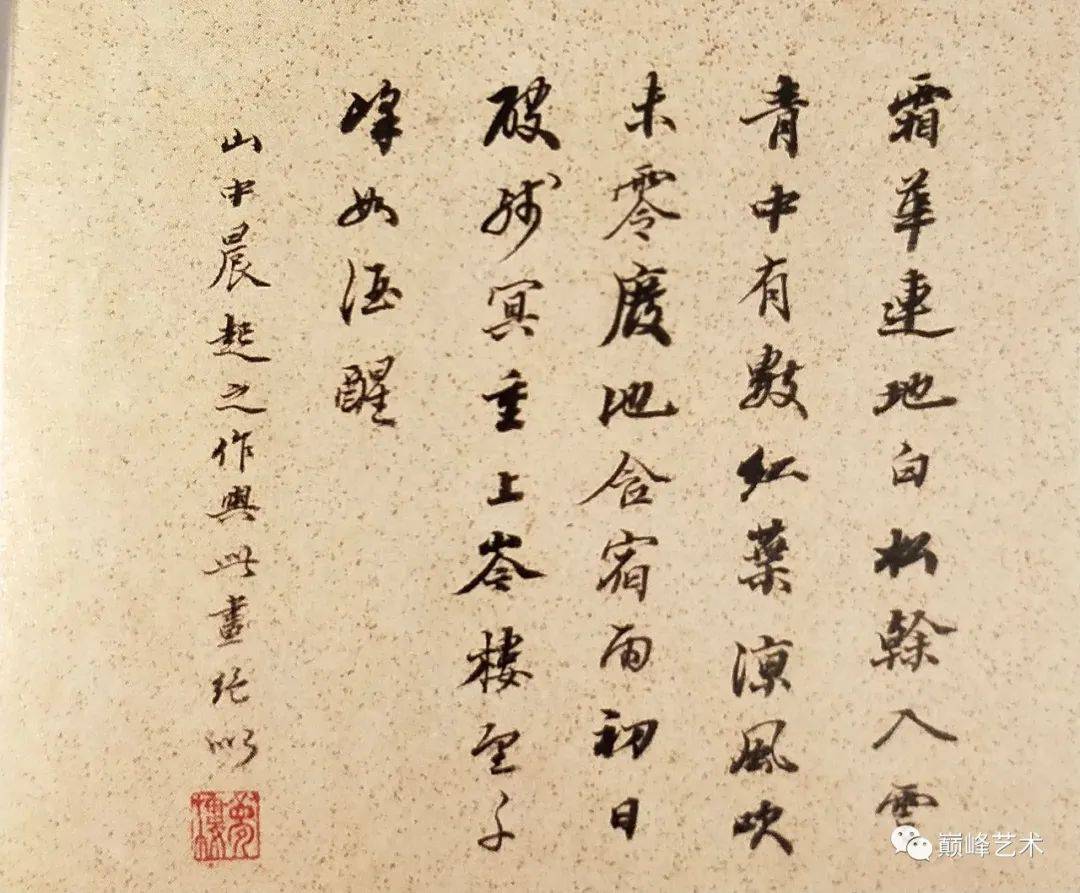 霜華連地白松榦入雲
青中有數紅葉涼風吹
未零廢池含宿雨初日
破殘冥重上岑樓望千
峰如酒醒
山中晨起之作與此畫頗似
巅峰艺术